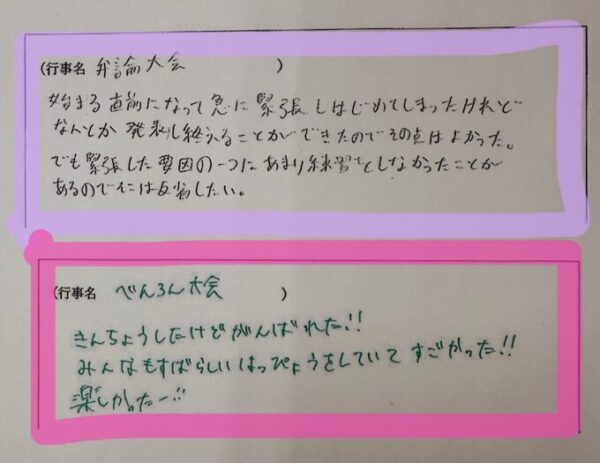 (行事名 弁論大会 )
始まる直前になって急に緊張しはじめてしまったけれど
なんとか発表し終えることができたのでその点はよかった。
でも緊張した要因の一つにあまり練習をしなかったことが
あるのでそこは反省したい。
(行事名 べんろん大会 )
きんちょうしたけどがんばれた!!
みんなもすばらしいはっぴょうをしていてすごかった!!
楽しかったー!!